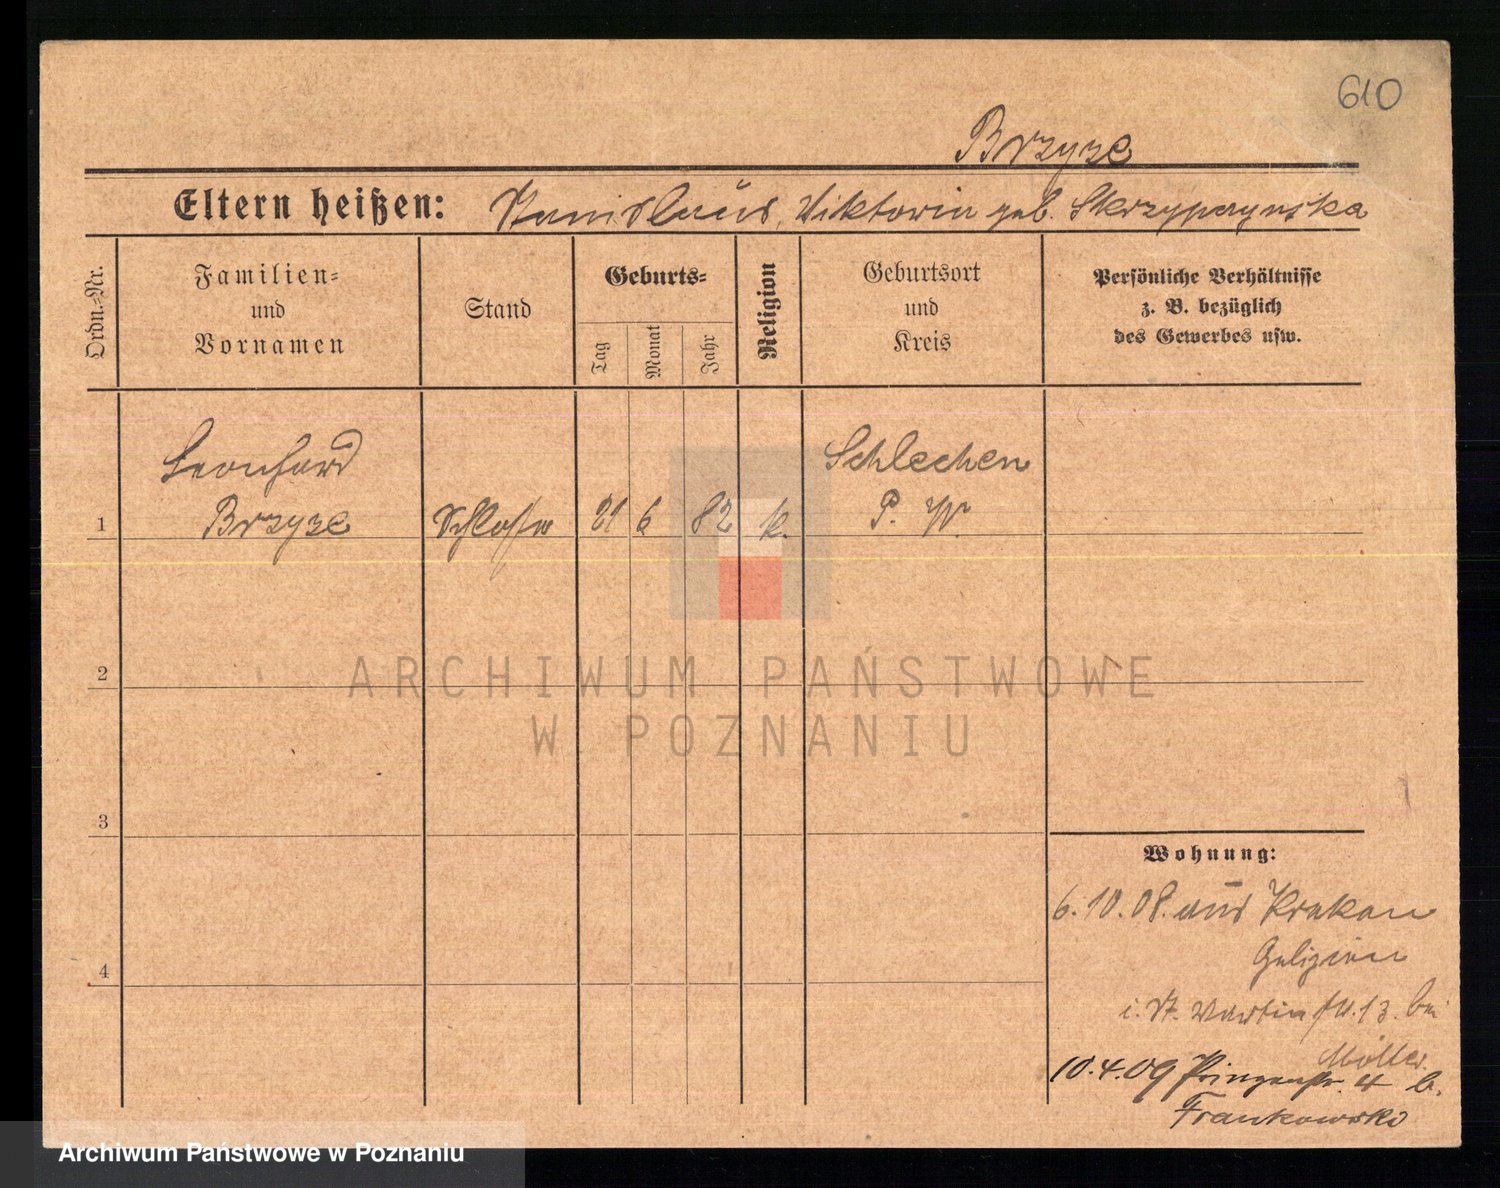 610
Brzyze
Eltern heißen: Stanislaus, Viktoria geb. Skrzypczynska
Ordn.=Nr.
Familien=
und
Vornamen
Stand
Geburts=
Tag
Monat
Jahr
Religion
Geburtsort
und
Kreis
Persönliche Verhältnisse
z. B. bezüglich
des Gewerbes usw.
Leonhard
Brzyze
1
Schlosser
21
6
82
k.
Schlechen
P. W.
2
3
4
Wohnung:
6.10.08. aus Krakau
Galizien
i. St. Martin 13. bei
Möller.
10.4.09 Prinzenstr. 4 b.
Frankowski
ARCHIWUM PAŃSTWOWE
W POZNANIU
Archiwum Państwowe w Poznaniu